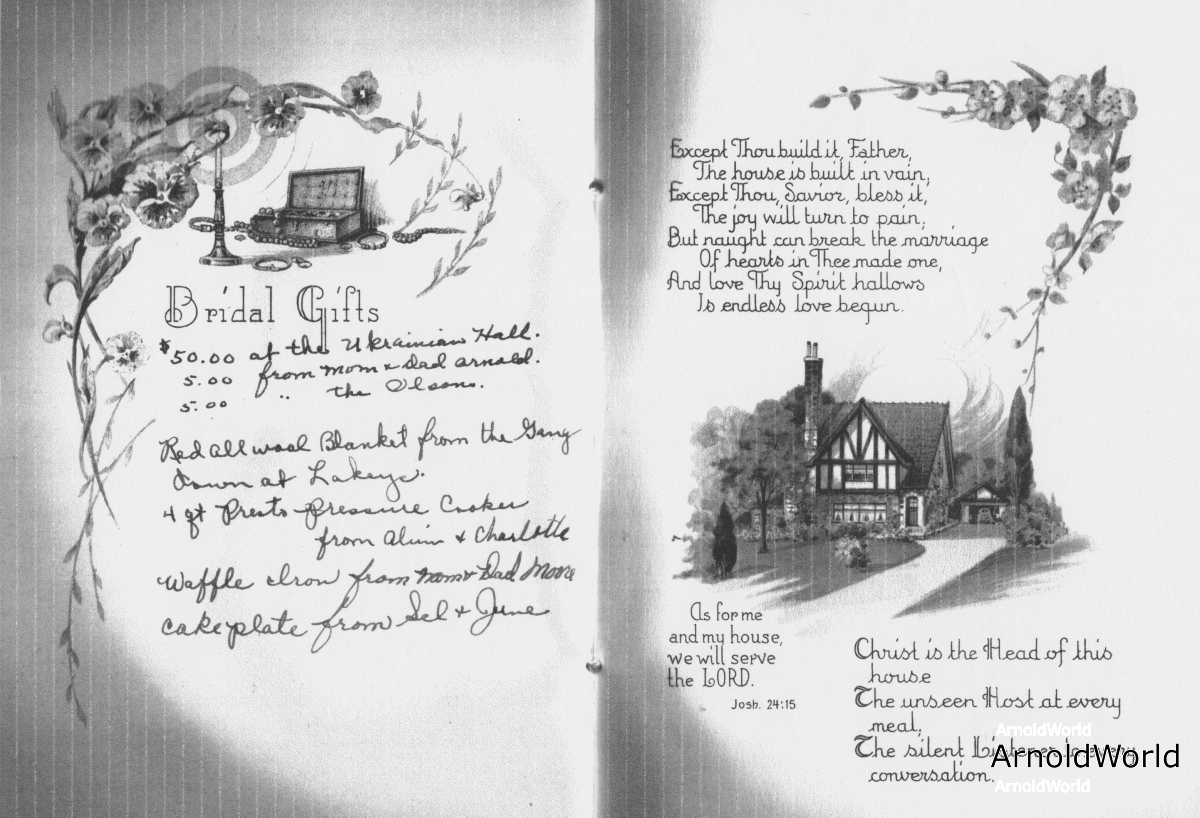 Bridal Gifts
$50.00 at the Ukrainian Hall.
5.00 from mom & dad arnold.
5.00 " the Olsons.
Red all wool Blanket from the Gang
Down at Lakeys.
4 qt Presto Pressure Cooker
from Alvin & Charlotte
Waffle Iron from mom & Dad Moore
cake plate from Sel & June
Except Thou build it, Father,
The house is built in vain,
Except Thou, Savior, bless it,
The joy will turn to pain.
But naught can break the marriage
Of hearts in Thee made one,
And love Thy Spirit hallows
Is endless love begun.
As for me
and my house,
we will serve
the LORD.
Josh. 24:15
Christ is the Head of this
house
The unseen Host at every
meal,
The silent Listener to every
conversation.
ArnoldWorld
ArnoldWorld
ArnoldWorld